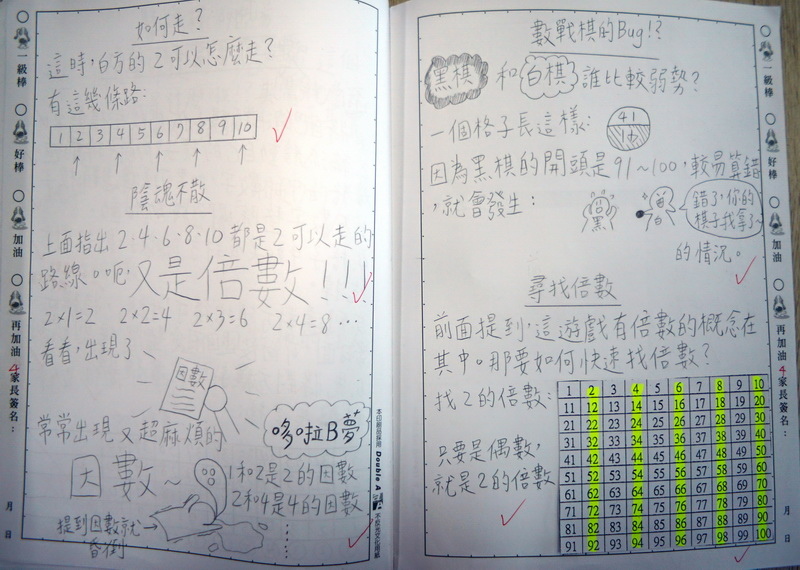 如何走?
這時,白方的2可以怎麼走?
有這幾條路:
1 2 3 4 5 6 7 8 9 10
陰魂不散
上面指出2、4、6、8、10都是2可以走的
路線。呃,又是倍數!!!
2×1=2 2×2=4 2×3=6 2×4=8…
看看,出現了
因數
常常出現又超麻煩的
哆啦B夢
因數~
1和2是2的因數
2和4是4的因數
提到因數就
昏倒
一級棒
好棒
加油
再加油
4
家長簽名:
月
日
本印刷品採用
Double A
數戰棋的Bug!?
黑棋和白棋誰比較弱勢?
一個格子長這樣:
41
因為黑棋的開頭是91~100,較易算錯
,就會發生:
黑
錯了,你的
棋子我拿了~
的情況。
尋找倍數
前面提到,這遊戲有倍數的概念在
其中。那要如何快速找倍數?
找2的倍數:
只要是偶數,
就是2的倍數
1 2 3 4 5 6 7 8 9 10
11 12 13 14 15 16 17 18 19 20
21 22 23 24 25 26 27 28 29 30
31 32 33 34 35 36 37 38 39 40
41 42 43 44 45 46 47 48 49 50
51 52 53 54 55 56 57 58 59 60
61 62 63 64 65 66 67 68 69 70
71 72 73 74 75 76 77 78 79 80
81 82 83 84 85 86 87 88 89 90
91 92 93 94 95 96 97 98 99 100
一級棒
好棒
加油
再加油
4
家長簽名:
月
日